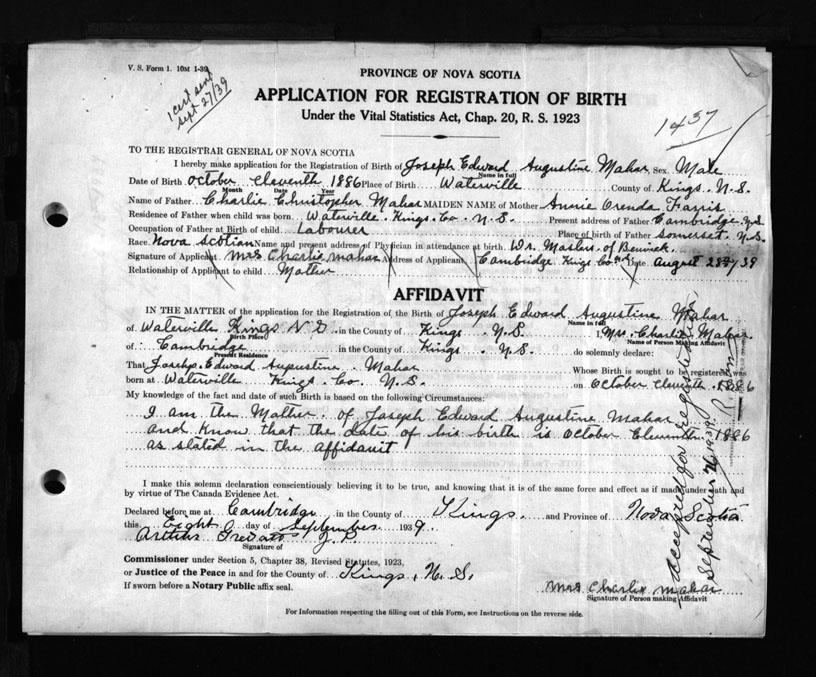 V. S. Form 1. 10M 1-39
1 cert sent
Sept 27/39
PROVINCE OF NOVA SCOTIA
APPLICATION FOR REGISTRATION OF BIRTH
Under the Vital Statistics Act, Chap. 20, R. S. 1923
1437
TO THE REGISTRAR GENERAL OF NOVA SCOTIA
I hereby make application for the Registration of Birth of Joseph Edward Augustine Mahar Sex Male
Name in full
Date of Birth October Eleventh 1886 Place of Birth Waterville County of Kings, N.S.
Month Date Year
Name of Father Charlie Christopher Mahar MAIDEN NAME of Mother Annie Orenda Farris
Residence of Father when child was born Waterville Kings Co. N.S. Present address of Father Cambridge N.S.
Occupation of Father at Birth of child Labourer Place of birth of Father Somerset, N.S.
Race Nova Scotian Name and present address of Physician in attendance at birth of Berwick
Signature of Applicant Mrs Charlie Mahar Address of Applicant Cambridge Kings Co. Date August 28th/39
Relationship of Applicant to child Mother
AFFIDAVIT
IN THE MATTER of the application for the Registration of the Birth of Joseph Edward Augustine Mahar
Name in full
of Waterville Kings N.S. in the County of Kings N.S. I, Mrs. Charlie Mahar
Birth Place Name of Person Making Affidavit
of Cambridge in the County of Kings N.S. do solemnly declare:
Present Residence
That Edward Augustine Mahar Whose Birth is sought to be registered was
born at Waterville Kings Co. N.S. on October Eleventh 1886
My knowledge of the fact and date of such Birth is based on the following Circumstances:
I am the Mother of Joseph Edward Augustine Mahar
and know that the date of his birth is October Eleventh 1886
as stated in the affidavit
I make this solemn declaration conscientiously believing it to be true, and knowing that it is of the same force and effect as if made under oath and
by virtue of The Canada Evidence Act.
Declared before me at Cambridge in the County of Kings and Province of Nova Scotia
this Eight day of September 1939.
Arthur J.P.
Signature of
Commissioner under Section 5, Chapter 38, Revised Statutes, 1923,
or Justice of the Peace in and for the County of Kings, N.S.
If sworn before a Notary Public affix seal.
Mrs Charlie Mahar
Signature of Person making Affidavit
For Information respecting the filling out of this Form, see Instructions on the reverse side.
Accepted for registration
September 1939